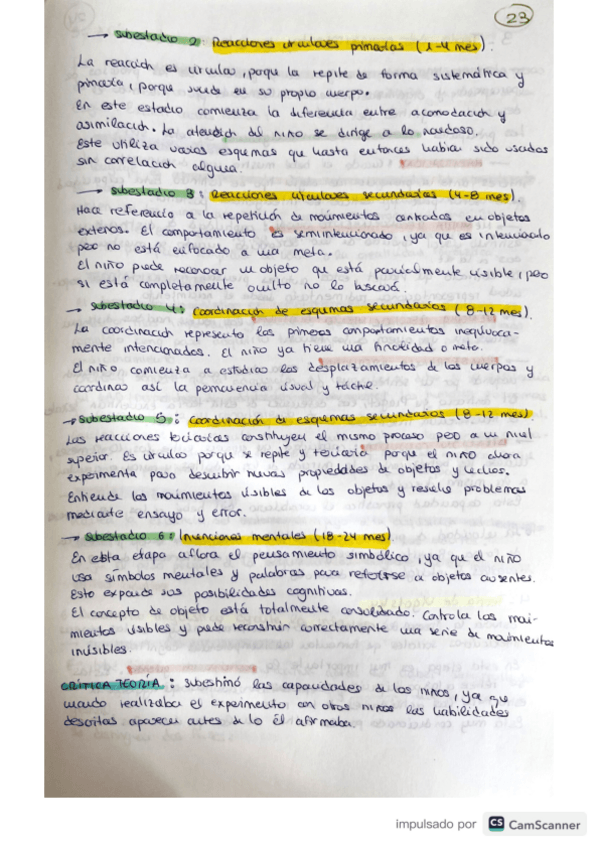 23
→ Subestadio 2: Reacciones circulares primarias (1-4 mes).
La reacción es circular, porque la repite de forma sistemática y
primaria, porque sucede en su propio cuerpo.
En este estadio comienza la diferencia entre acomodación y
asimilación. La atención del niño se dirige a lo novedoso.
Este utiliza varios esquemas que hasta entonces habían sido usados
sin correlación alguna.
→ Subestadio 3: Reacciones circulares secundarias (4-8 mes).
Hace referencia a la repetición de movimientos centrados en objetos
externos. El comportamiento es semiintencionado, ya que es intencionado
pero no está enfocado a una meta.
El niño puede reconocer un objeto que está parcialmente visible, pero
si está completamente oculto no lo buscará.
→ Subestadio 4: Coordinación de esquemas secundarios (8-12 mes).
La coordinación representa los primeros comportamientos inequívoca-
mente intencionados. El niño ya tiene una finalidad o meta.
El niño comienza a estudiar los desplazamientos de los cuerpos y
coordinar así la permanencia visual y táctil.
→ Subestadio 5: Coordinación de esquemas secundarios (8-12 mes)
Las reacciones terciarias constituyen el mismo proceso pero a un nivel
superior. Es circular porque se repite y terciaria porque el niño ahora
experimenta para descubrir nuevas propiedades de objetos y hechos.
Entiende los movimientos visibles de los objetos y resuelve problemas
mediante ensayo y error.
→ Subestadio 6: Invenciones mentales (18-24 mes).
En esta etapa aflora el pensamiento simbólico, ya que el niño
usa símbolos mentales y palabras para referirse a objetos ausentes.
Esto expande sus posibilidades cognitivas.
El concepto de objeto está totalmente consolidado. Controla los movi-
mientos visibles y puede reconstruir correctamente una serie de movimientos
invisibles.
CRÍTICA TEORÍA: Subestimó las capacidades de los niños, ya que
cuando realizaba el experimento con otros niños las habilidades
descritas aparecen antes de lo él afirmaba.
impulsado por CS CamScanner